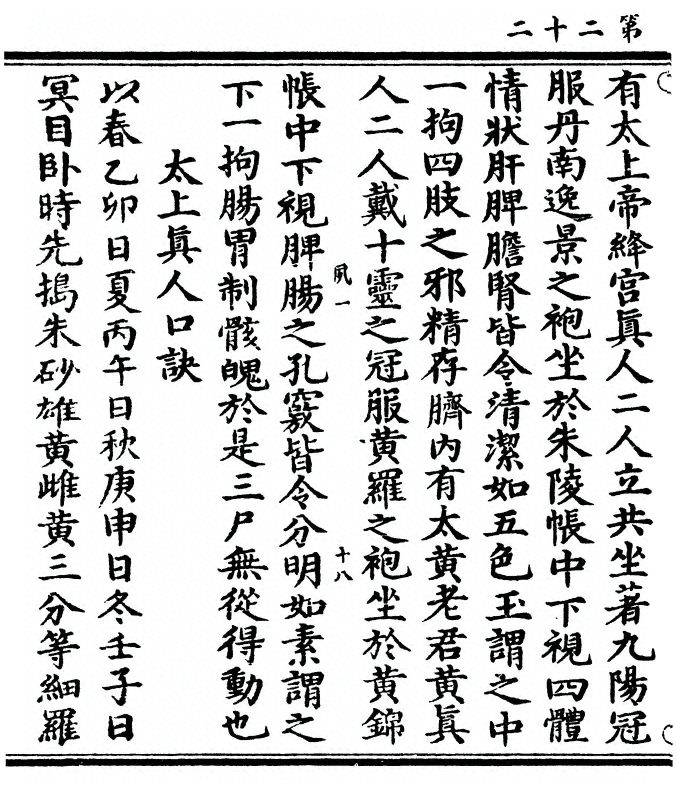 第二十二
有太上帝絳宮真人二人立共坐著九陽冠
服丹南逸景之袍坐於朱陵帳中下視四體
情狀肝脾膽腎皆令清潔如五色玉謂之中
一拘四肢之邪精存臍内有太黄老君黄真
人二人戴十靈之冠服黄羅之袍坐於黄錦
夙一
十八
帳中下視脾腸之孔竅皆令分明如素謂之
下一拘腸胃制骸魄於是三尸無從得動也
太上真人口訣
以春乙卯日夏丙午日秋庚申日冬壬子日
冥目卧時先搗朱砂雄黄雌黄三分等細羅